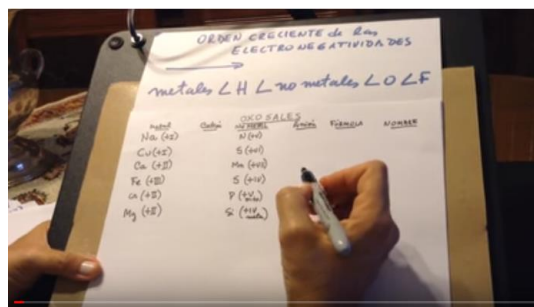 ORDEN CRECIENTE de las
ELECTRONEGATIVIDADES
metales < H < no metales < O < F
OXOSALES
METAL Catión NO METAL Anión FÓRMULA NOMBRE
Na (+I) N (+V)
Cu (+I) S (+VI)
Ca (+II) Mn (+VI)
Fe (+III) S (+IV)
(+II) P (+V
Mg (+II) Si (+IV